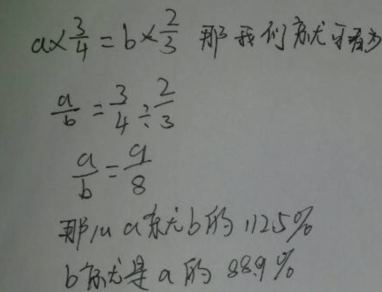 a×3/4=b×2/3 那我们就可看为
a/b=3/4÷2/3
a/b=9/8
那么a就b的112.5%
b就是a的88.9%